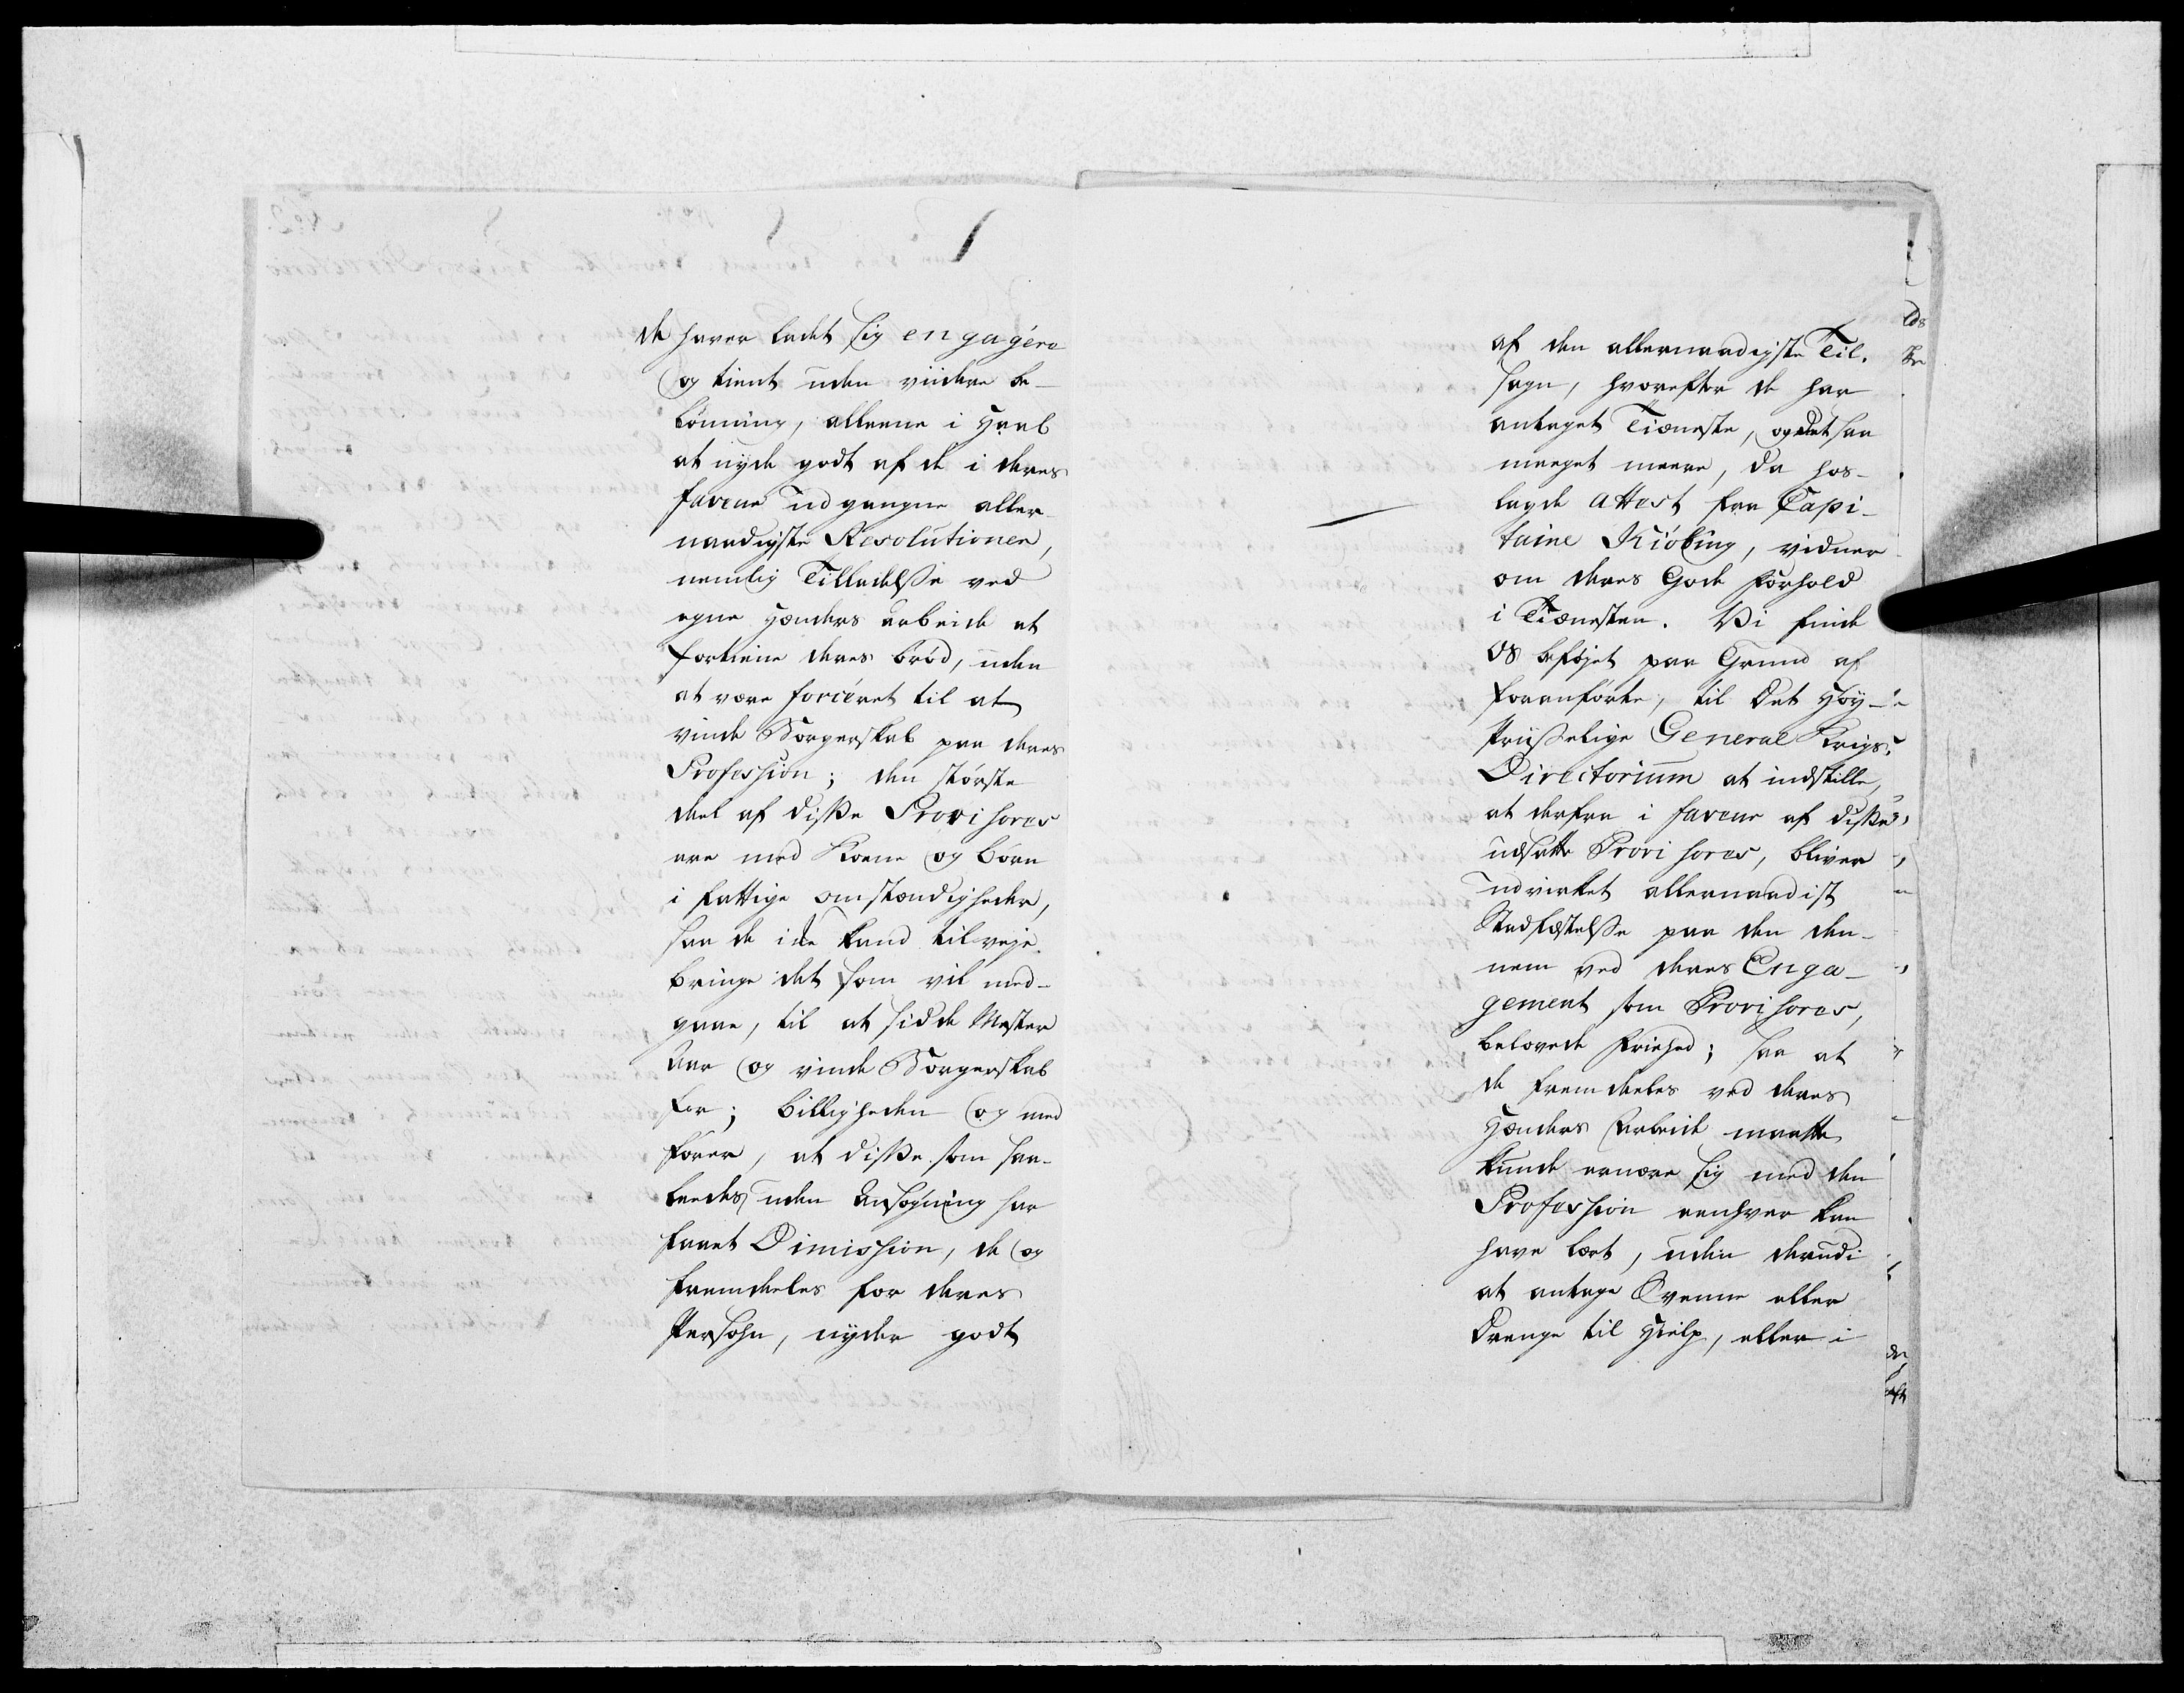 de haver ladet sig engagére
og tient uden viidere be-
lønning, alleene i Haab
at nyde godt af de i deres
faveur udgangne aller-
naadigste Resolutioner,
nemlig Tilladelsse ved
egne Hænders arbeide at
fortiene deres brød, uden
at være forceret til at
vinde Borgerskab paa deres
Profession; den største
deel af disse Provisores
ere med Kone og børn
i fattige omstændigheder,
saa de icke kand tilveje-
bringe det som vil med-
gaae, til at sidde Mester
Aar og vinde Borgerskab
for; billigheden og med
fører, at disse som saa-
leedes uden Ansøgning har
faaet Dimission, de og
fremdeeles for deres
Persohn, nyder godt
af den allernaadigste Til-
sagn, hvorefter de har
antaget Tiæneste, og det saa
meeget meere, da hos-
lagde attest fra Capi-
taine Kiøbing, vidner
om deres Gode forhold
i Tiænesten. Vi finde
os beføjet paa Grund af
foranførte, til Det Høy-
Priisselige General Krigs-
Directorium at indstille,
at derfra i faveur af disse
udsatte Provisores, bliver
udvirket allernaadist
Stadfæstelsse paa den den-
nem ved deres Enga-
gement som Provisores,
belovede friehed; saa at
de fremdeeles ved deres
Hænders Arbeide maatte
kunde ernære sig med den
Profession eenhver kan
have lært, uden derudi
at antage Svenne eller
Drenge til Hielp, eller i